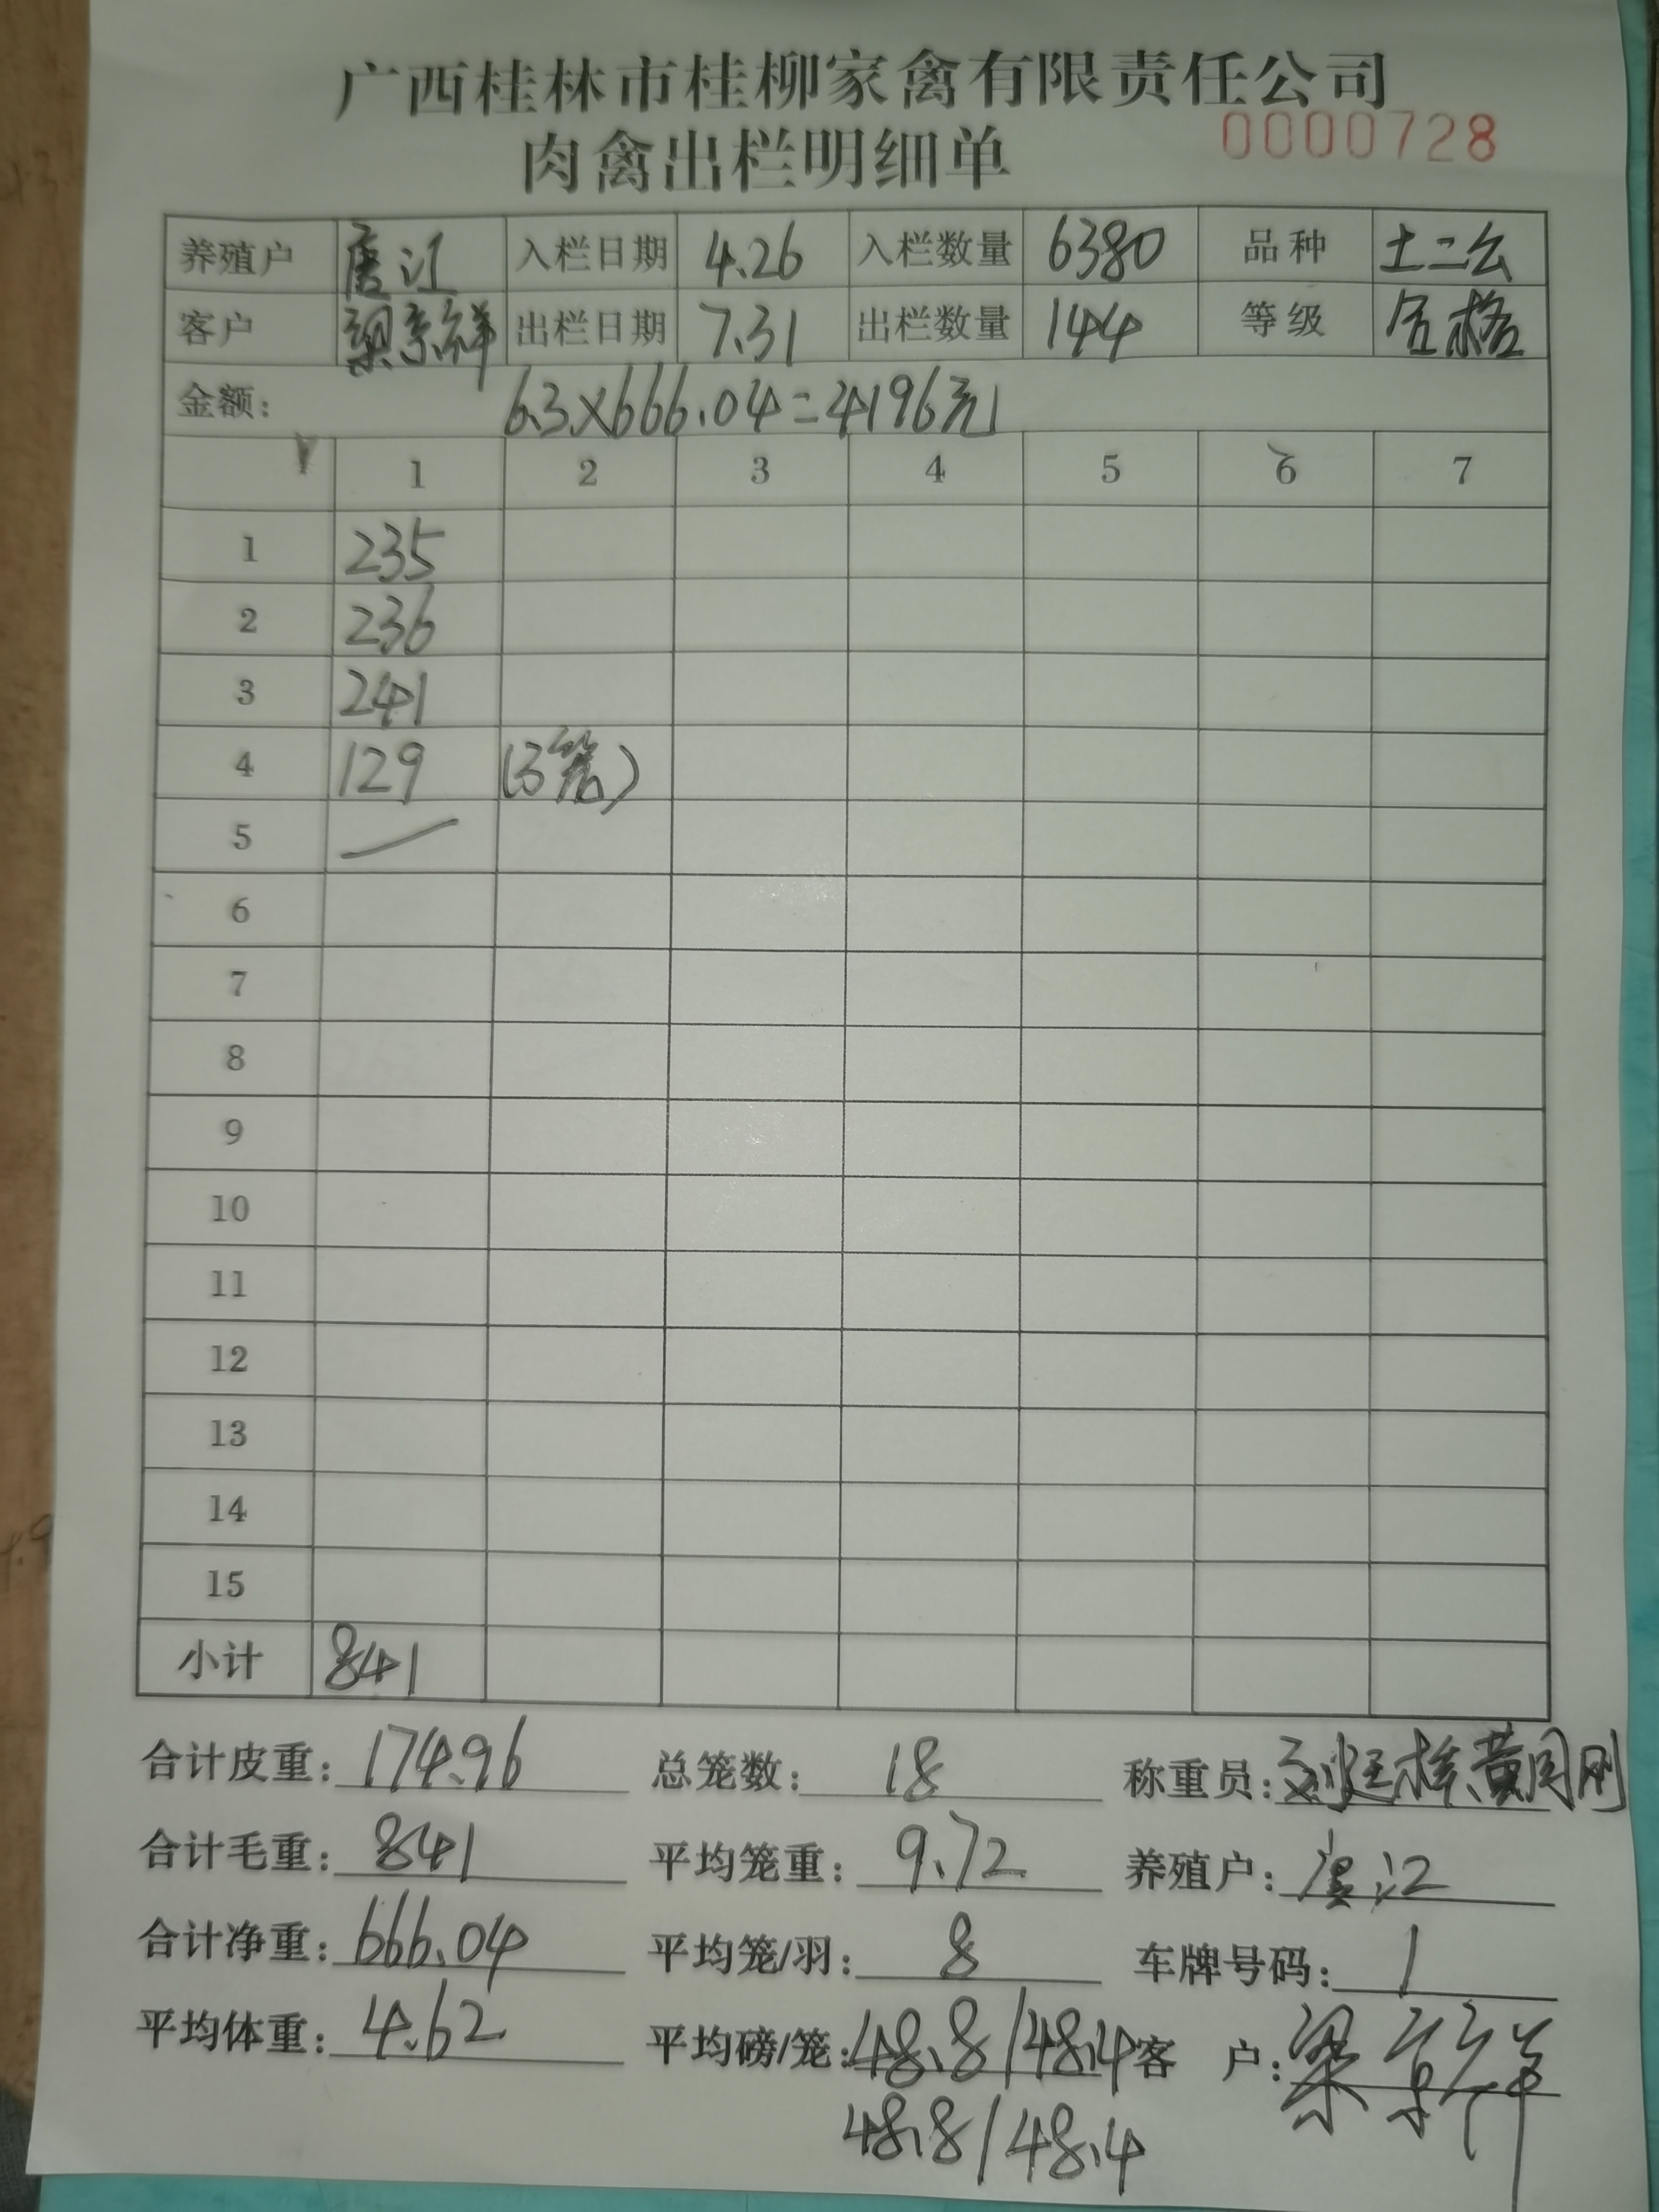 广西桂林市桂柳家禽有限责任公司
肉禽出栏明细单 0000728
养殖户 唐江 入栏日期 4.26 入栏数量 6380 品种 土二公
客户 梁京祥 出栏日期 7.31 出栏数量 144 等级 合格
金额: 6.3×666.04=4196元
1 2 3 4 5 6 7
1 235
2 236
3 241
4 129 (3笼)
5
6
7
8
9
10
11
12
13
14
15
小计 841
合计皮重: 174.96 总笼数: 18 称重员: 黄同刚
合计毛重: 841 平均笼重: 9.72 养殖户: 唐江
合计净重: 666.04 平均笼/羽: 8 车牌号码: 1
平均体重: 4.62 平均磅/笼: 48.8/48.4 客 户: 梁京祥
48.8/48.4